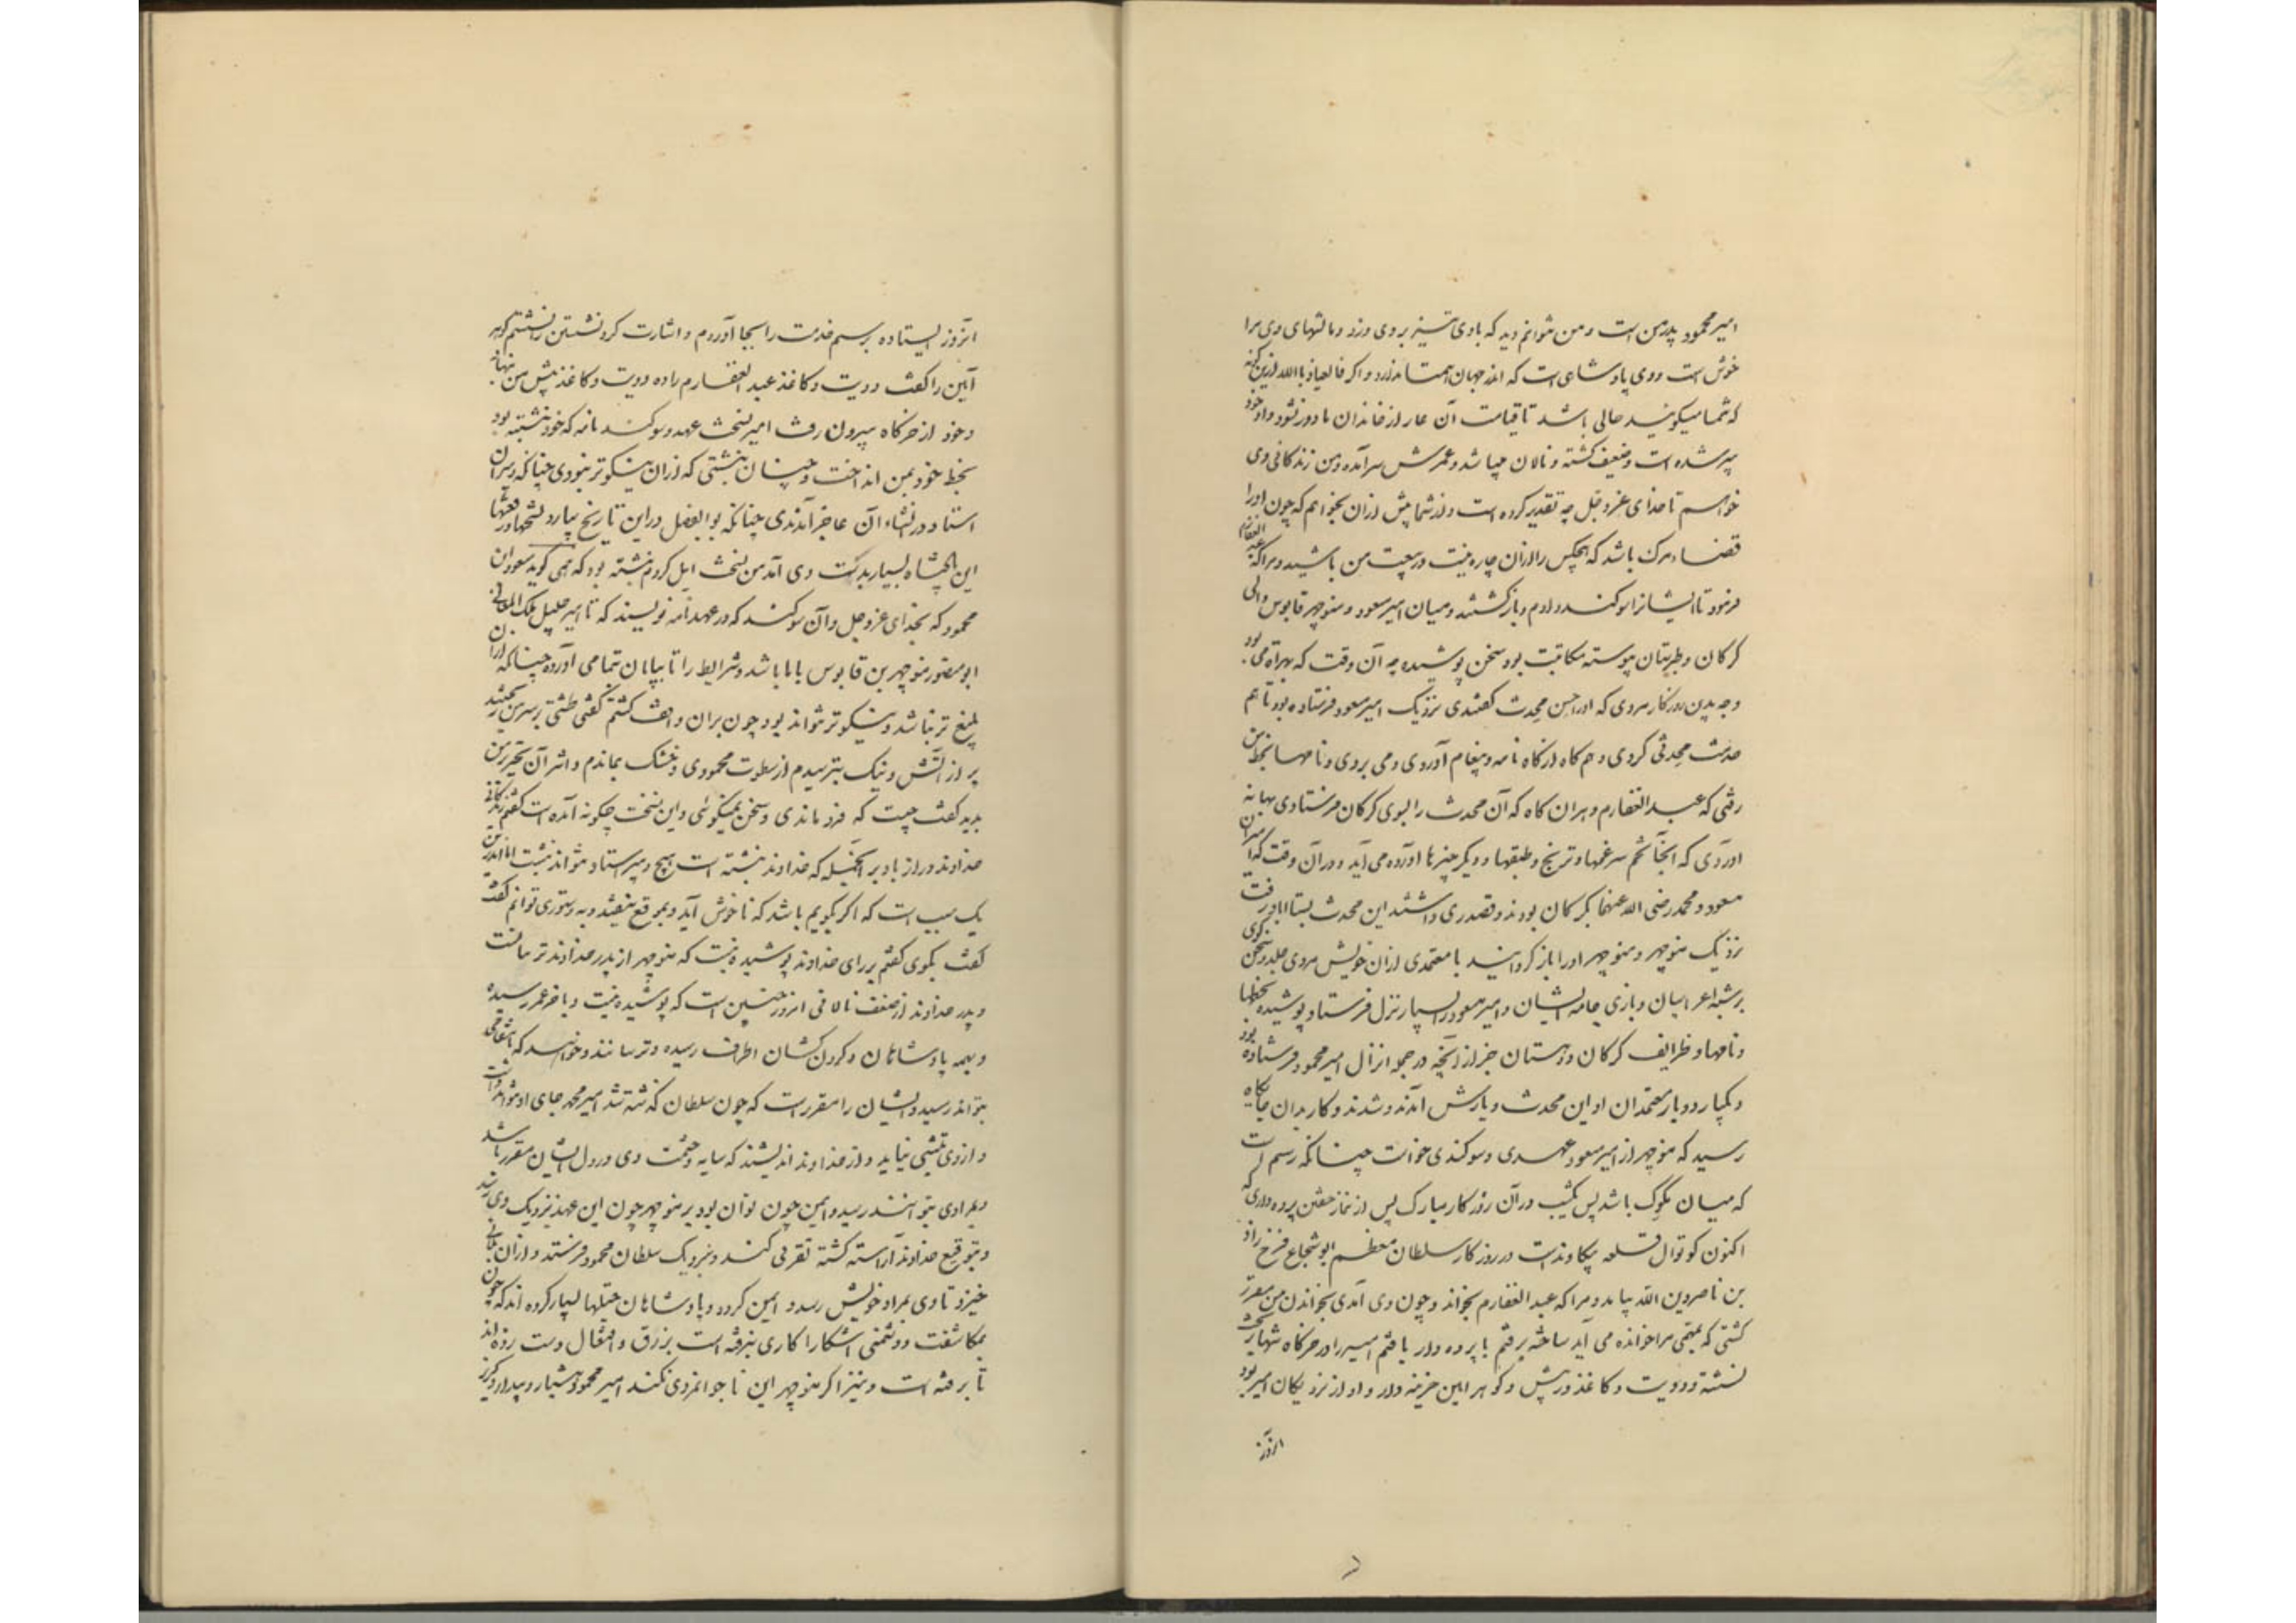 امیر محمود پدر من است و من نتوانم دید که بادی تیز بر وی وزد و مالشهای وی مرا
خوش است و وی پادشاهی است که اندر جهان همتا ندارد و اگر فالعیاذ بالله ازین گونه
که شما میگویید حالی باشد تا قیامت آن عار از خاندان ما دور نشود و او خود
پیر شده است و ضعیف گشته و نالان میباشد و عمرش سر آمده و من زندگانی وی
خواهم تا خدای عز و جل چه تقدیر کرده است و از شما پیش ازان نخواهم که چون او را
قضاء مرگ باشد که هیچکس را ازان چاره نیست در بیعت من باشید و مرا که عبد الغفارم
فرمود تا ایشانرا سوگند دادم و بازگشتند و میان امیر مسعود و منوچهر قابوس والی
گرگان و طبرستان پیوسته مکاتبت بود سخن پوشیده چه آن وقت که بهراه می بود
و چه بدین روزگار مردی که او را حسن محدث گفتندی نزدیک امیر مسعود فرستاده بود تا هم
خدمت محدثی کردی و هم گاه از گاه نامه و پیغام آوردی و می بردی و نامها بخط من
رفتی که عبد الغفارم و هران گاه که آن محدث را بسوی گرگان فرستادی بهانه
آوردی که آنجا تخم سپرغمها و ترنج و طبقها و دیگر چیزها آورده می آید و در آن وقت که امیران
مسعود و محمد رضی الله عنهما بگرگان بودند و قصد ری داشتند این محدث بستاراباد رفت
نزدیک منوچهر و منوچهر او را باز گردانید با معتمدی ازان خویش مردی جلد و سخن گوی
بر شبه اعرابیان و بازی جامه ایشان و امیر مسعود را بسیار نزل فرستاد پوشیده بخطها
و نامها و ظرایف گرگان و دهستان جز از آنچه در جمله انزال امیر محمود فرستاده بود
و یکبار دو بار معتمدان او این محدث و یارش آمدند و شدند و کار بدان جایگاه
رسید که منوچهر از امیر مسعود عهدی و سوگندی خواست چنانکه رسم است
که میان ملوک باشد پس یکشب در آن روزگار مبارک پس از نماز خفتن پرده داری که
اکنون کوتوال قلعه سکاوندست در روزگار سلطان معظم ابو شجاع فرخ زاد
بن ناصر دین الله بیامد و مرا که عبد الغفارم بخواند و چون وی آمدی بخواندن من مقرر
گشتی که بمهمی مرا خوانده می آید ساخته برفتم با پرده دار یافتم امیر را در خرگاه تنها بر تخت
نشسته و دویت و کاغذ در پیش و گوهر آیین خزینه دار و او از نزدیکان امیر بود
انروز
انروز ایستاده برسم خدمت را بجا آوردم و اشارت کرد نشستن را نشستم گوهر
آیین را گفت دویت و کاغذ عبد الغفار را ده دویت و کاغذ پیش من بنهاد
و خود از خرگاه بیرون رفت امیر نسخت عهد و سوگند نامه که خود نبشته بود
بخط خود بمن انداخت و چنان نبشتی که ازان نیکوتر نبودی چنانکه دبیران
استاد در انشاء آن عاجز آمدندی چنانکه بو الفضل در این تاریخ بیارد نسختها و رقعتها
این پادشاه بسیار بدست وی آمد من نسخت تامل کردم نبشته بود که همی گوید مسعود ابن
محمود که بخدای عز و جل و آن سوگند که در عهدنامه نویسند که تا امیر جلیل فلک المعالی
ابو منصور منوچهر بن قابوس با ما باشد و شرایط را تا بپایان بتمامی آورده چنانکه ازان
بلیغ تر نباشد و نیکوتر نتواند بود چون بران واقف گشتم گفتی طشتی بر سر من ریختند
پر از آتش و نیک بترسیدم از سطوت محمودی و خشک بماندم و اثر آن تحیر در من
بدید گفت چیست که فرو ماندی و سخن نمیگوئی و این نسخت چگونه آمده است گفتم زندگانی
خداوند دراز باد بر آنجمله که خداوند نبشته است هیچ دبیر استاد نتواند نبشت اما اندرین
یک سبب است که اگر بگویم باشد که ناخوش آید و بموقع نیفتد و به دستوری توانم گفت
گفت بگوی گفتم بر رای خداوند پوشیده نیست که منوچهر از پدر خداوند ترسانست
و پدر خداوند از ضعف نالانی امروز چنین است که پوشیده نیست و بآخر عمر رسیده
و بهمه پادشاهان و گردن کشان اطراف رسیده و ترسانند و خواهند که بانتقامی
بتوانند رسید و ایشان را مقررست که چون سلطان گذشته شد امیر محمد جای او نتواند داشت
و از وی تثبتی نیاید و از خداوند اندیشند که سایه و حشمت وی در دل ایشان مقرر باشد
و بمرادی نتوانند رسید و ایمن چون توان بود بر منوچهر چون این عهد نزدیک وی رسد
و بتوقیع خداوند آراسته گشته تقربی کند و نزدیک سلطان محمود فرستد و ازان بلائی
خیزد تا وی بمراد خویش رسد و ایمن گردد و پادشاهان حیلتها بسیار کرده اند که چون
بمکاشفت و دشمنی آشکارا کاری نرفته است بزرق و افتعال دست زده اند
تا برفته است و نیز اگر منوچهر این ناجوانمردی نکند امیر محمود هشیار و بیدار و گربز